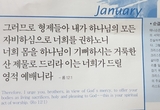 January
그러므로 형제들아 내가 하나님의 모든
자비하심으로 너희를 권하노니
너희 몸을 하나님이 기뻐하시는 거룩한
산 제물로 드리라 이는 너희가 드릴
영적 예배니라 -롬12:1
Therefore, I urge you, brothers, in view of God's mercy, to offer your
bodies as living sacrifices, holy and pleasing to God - this is your spiritual
act of worship. (Ro 12:1)